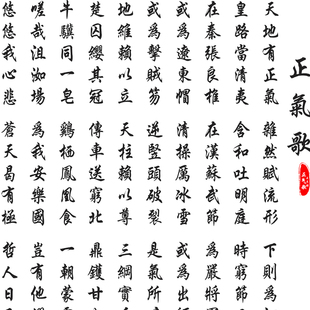 正氣歌
天地有正氣 雜然賦流形 下則為
皇路當清夷 含和吐明庭 時窮節
在秦張良椎 在漢蘇武節 為嚴將
或為遼東帽 清操厲冰雪 或為出
或為擊賊笏 逆豎頭破裂 是氣所
地維賴以立 天柱賴以尊 三綱實
楚囚纓其冠 傳車送窮北 鼎鑊甘
牛驥同一皂 鷄栖鳳凰食 一朝蒙
嗟哉沮洳場 為我安樂國 豈有他
悠悠我心悲 蒼天曷有極 哲人日